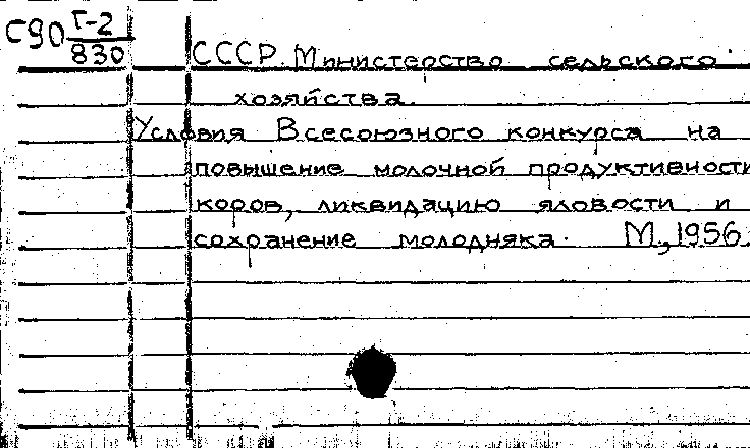 С90 Г-2
830
СССР. Министерство сельского
хозяйства.
Условия Всесоюзного конкурса на
повышение молочной продуктивности
коров, ликвидацию яловости и
сохранение молодняка. М., 1956